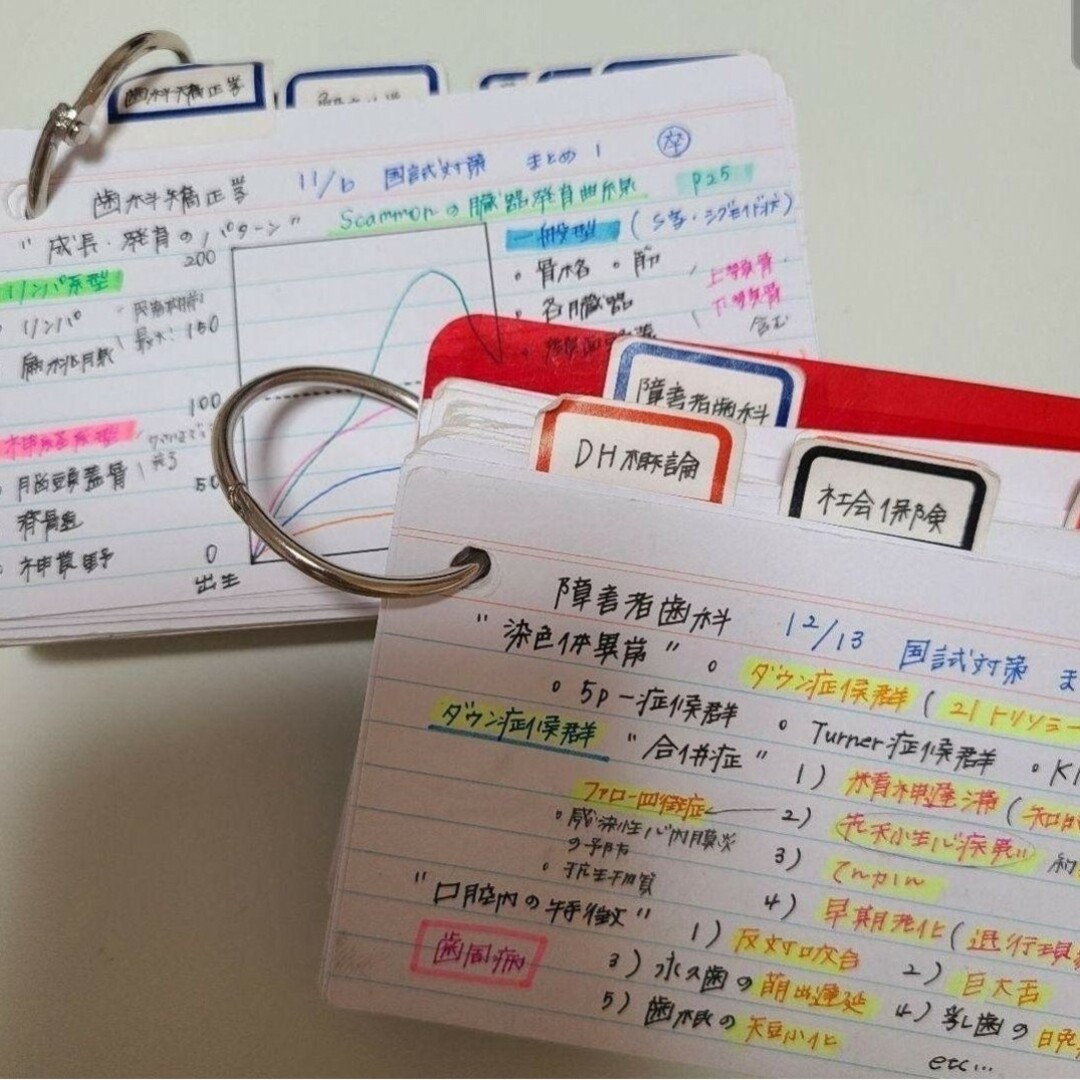 歯科矯正学
歯科矯正学 11/6 国試対策 まとめ1 卒
"成長・発育のパターン" Scammonの臓器発育曲線 P25
リンパ系型 200 一般型 (S字・シグモイド状)
リンパ 150 。骨格 。筋 上顎骨
扁桃 最大: 。各臓器 下顎骨
含む
100
神経系型
脳頭蓋骨 50
脊髄
神菓野 0
出生
障害者歯科
DH概論
社会保険
障害者歯科 12/13 国試対策 ま
"染色体異常" 。ダウン症候群 (21トリソミー
。5p-症候群 。Turner症候群 。Kl
ダウン症候群 "合併症" 1) 精神遅滞 (知的
ファロー四徴症 2) 先天性心疾患
。感染性心内膜炎の予防 3) てんかん
。抗生
4) 早期老化 (退行現
"口腔内の特徴" 1) 反対咬合 2) 巨大舌
歯周病 3) 永久歯の萌出遅延 4) 乳歯の晩
5) 歯根の短小化
etc…